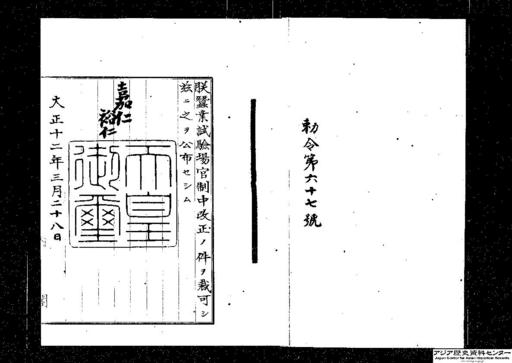 勅令第六十七號
朕蠶業試驗場官制中改正ノ件ヲ裁可シ
茲ニ之ヲ公布セシム
嘉仁
裕仁
天皇
御璽
大正十二年三月二十八日
アジア歴史資料センター
Japan Center for Asian Historical Records